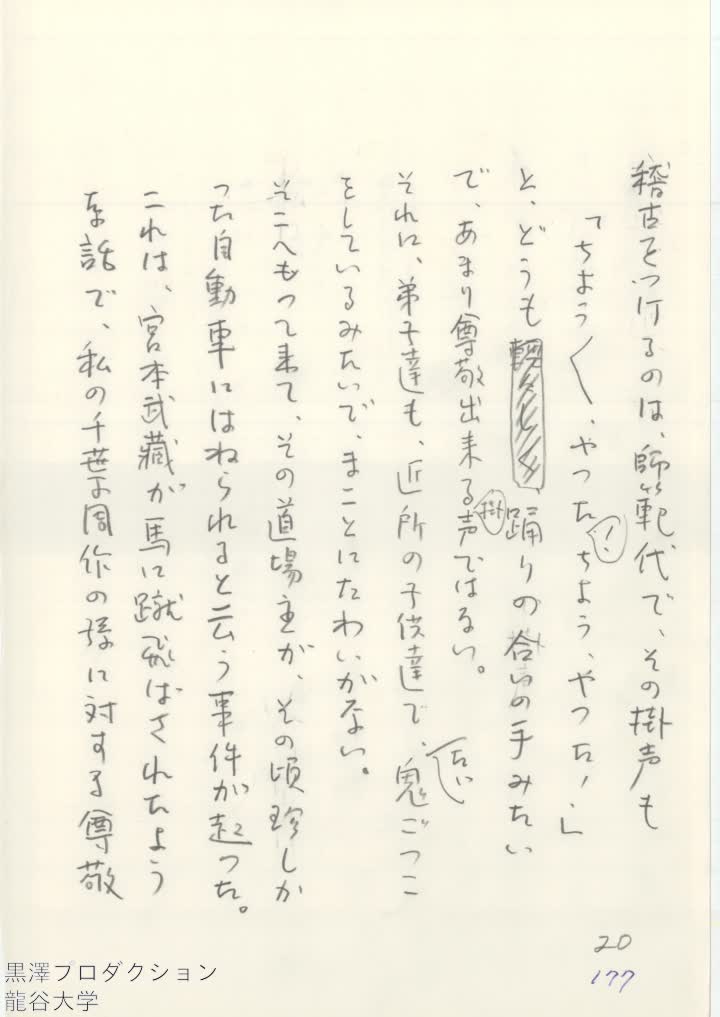 稽古をつけるのは、師範代で、その掛声も
「ちょう〱、やった！ちょう、やった！」
と、どうも、踊りの合いの手みたい
で、あまり尊敬出来る掛声ではない。
それに、弟子達も、近所の子供達で、たゞ鬼ごつこ
をしているみたいで、まことにたわいがない。
そこへもつて来て、その道場主が、その頃珍しか
つた自動車にはねられると云う事件が起つた。
これは、宮本武蔵が馬に蹴飛ばされたよう
な話で、私の千葉周作の孫に対する尊敬
20
177
黒澤プロダクション
龍谷大学